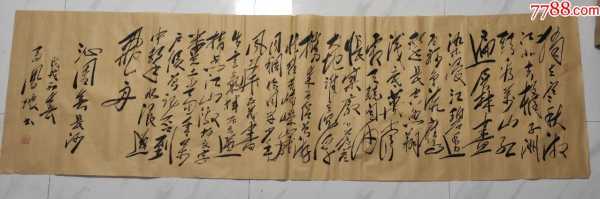 7788.com
独立寒秋湘
江北去橘子洲
头看万山红
遍层林尽
染漫江碧透
百舸争流鹰
击长空鱼翔
浅底万类
霜天竞自由
怅寥廓问苍
茫大地谁主沉浮
携来百侣曾游
忆往昔峥嵘
岁月稠恰
同学少年
风华正茂书
生意气挥斥方遒
指点江山激扬文字
粪土当年万
户侯曾记否到
中流击水浪遏
飞舟
沁园春长沙